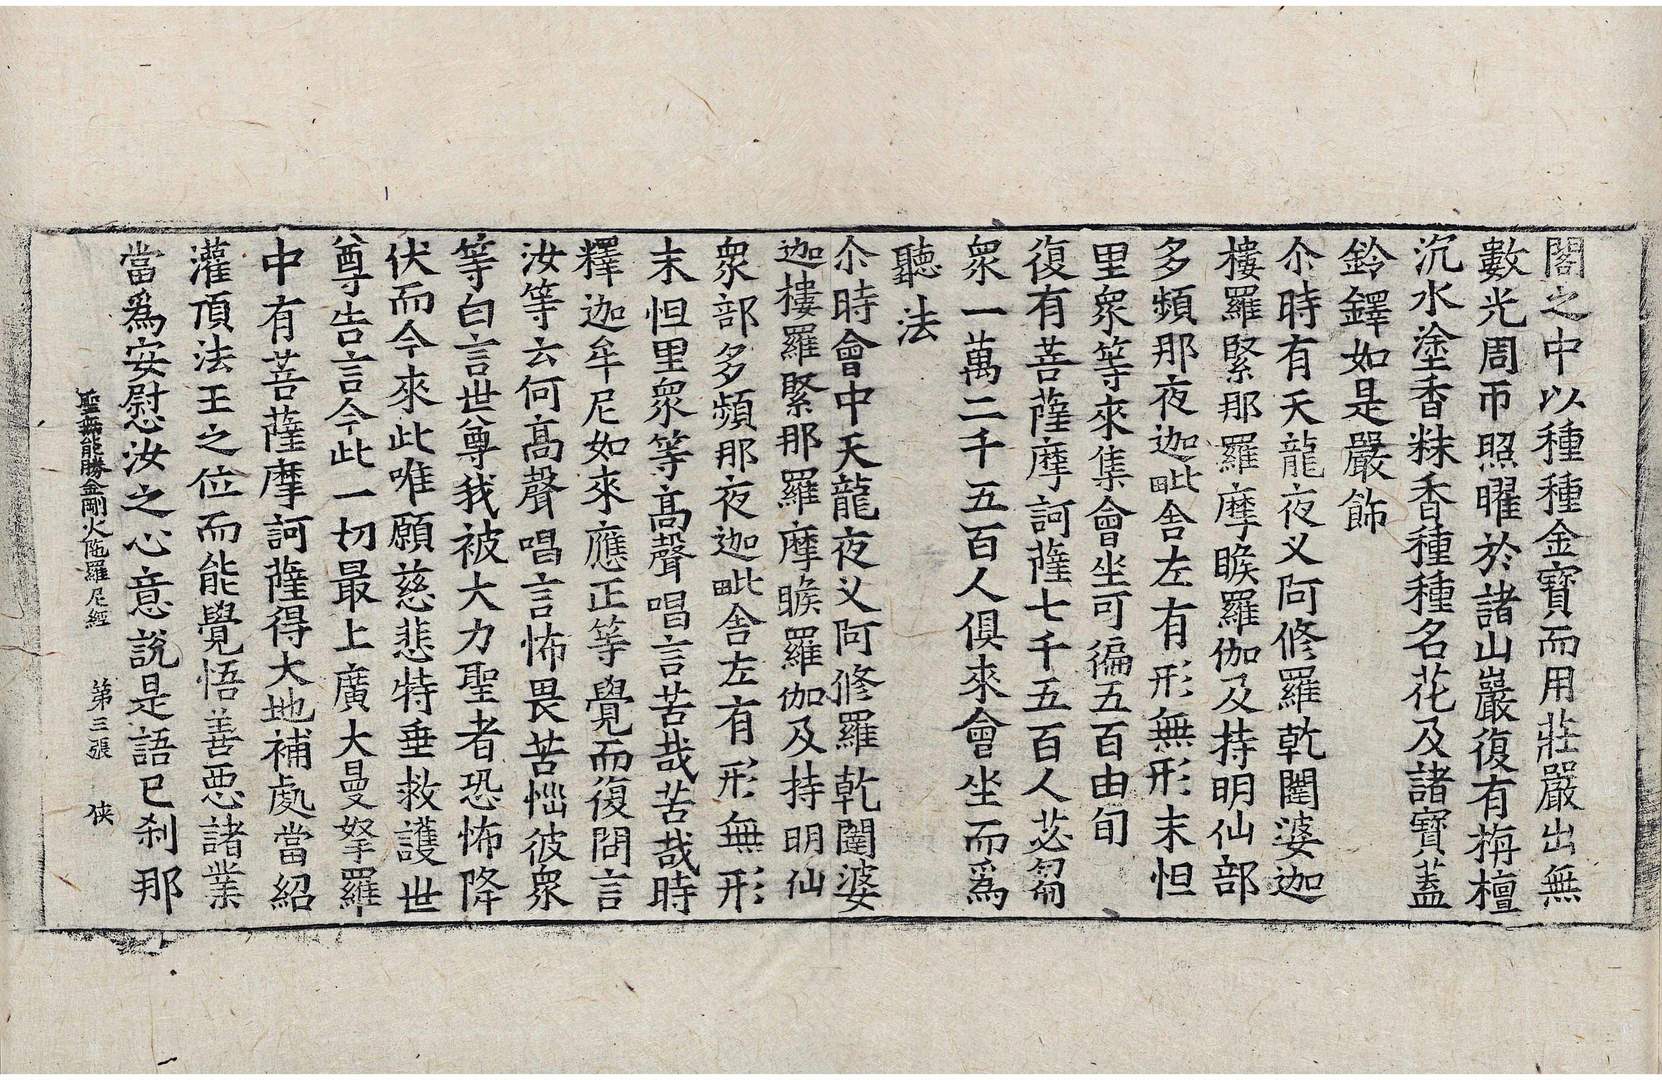 閣之中以種種金寶而用莊嚴出無
數光周帀照曜於諸山巖復有栴檀
沉水塗香粖香種種名花及諸寶蓋
鈴鐸如是嚴飾
尒時有天龍夜叉阿修羅乾闥婆迦
樓羅緊那羅摩睺羅伽及持明仙部
多頻那夜迦毗舍左有形無形末怛
里衆等來集會坐可徧五百由旬
復有菩薩摩訶薩七千五百人苾芻
衆一萬二千五百人俱來會坐而爲
聽法
尒時會中天龍夜叉阿修羅乾闥婆
迦樓羅緊那羅摩睺羅伽及持明仙
衆部多頻那夜迦毗舍左有形無形
末怛里衆等高聲唱言苦哉苦哉時
釋迦牟尼如來應正等覺而復問言
汝等云何高聲唱言怖畏苦惱彼衆
等白言世尊我被大力聖者恐怖降
伏而今來此唯願慈悲特垂救護世
尊告言今此一切最上廣大曼拏羅
中有菩薩摩訶薩得大地補處當紹
灌頂法王之位而能覺悟善惡諸業
當爲安慰汝之心意說是語已剎那
聖無能勝金剛火陁羅尼經 第三張 俠